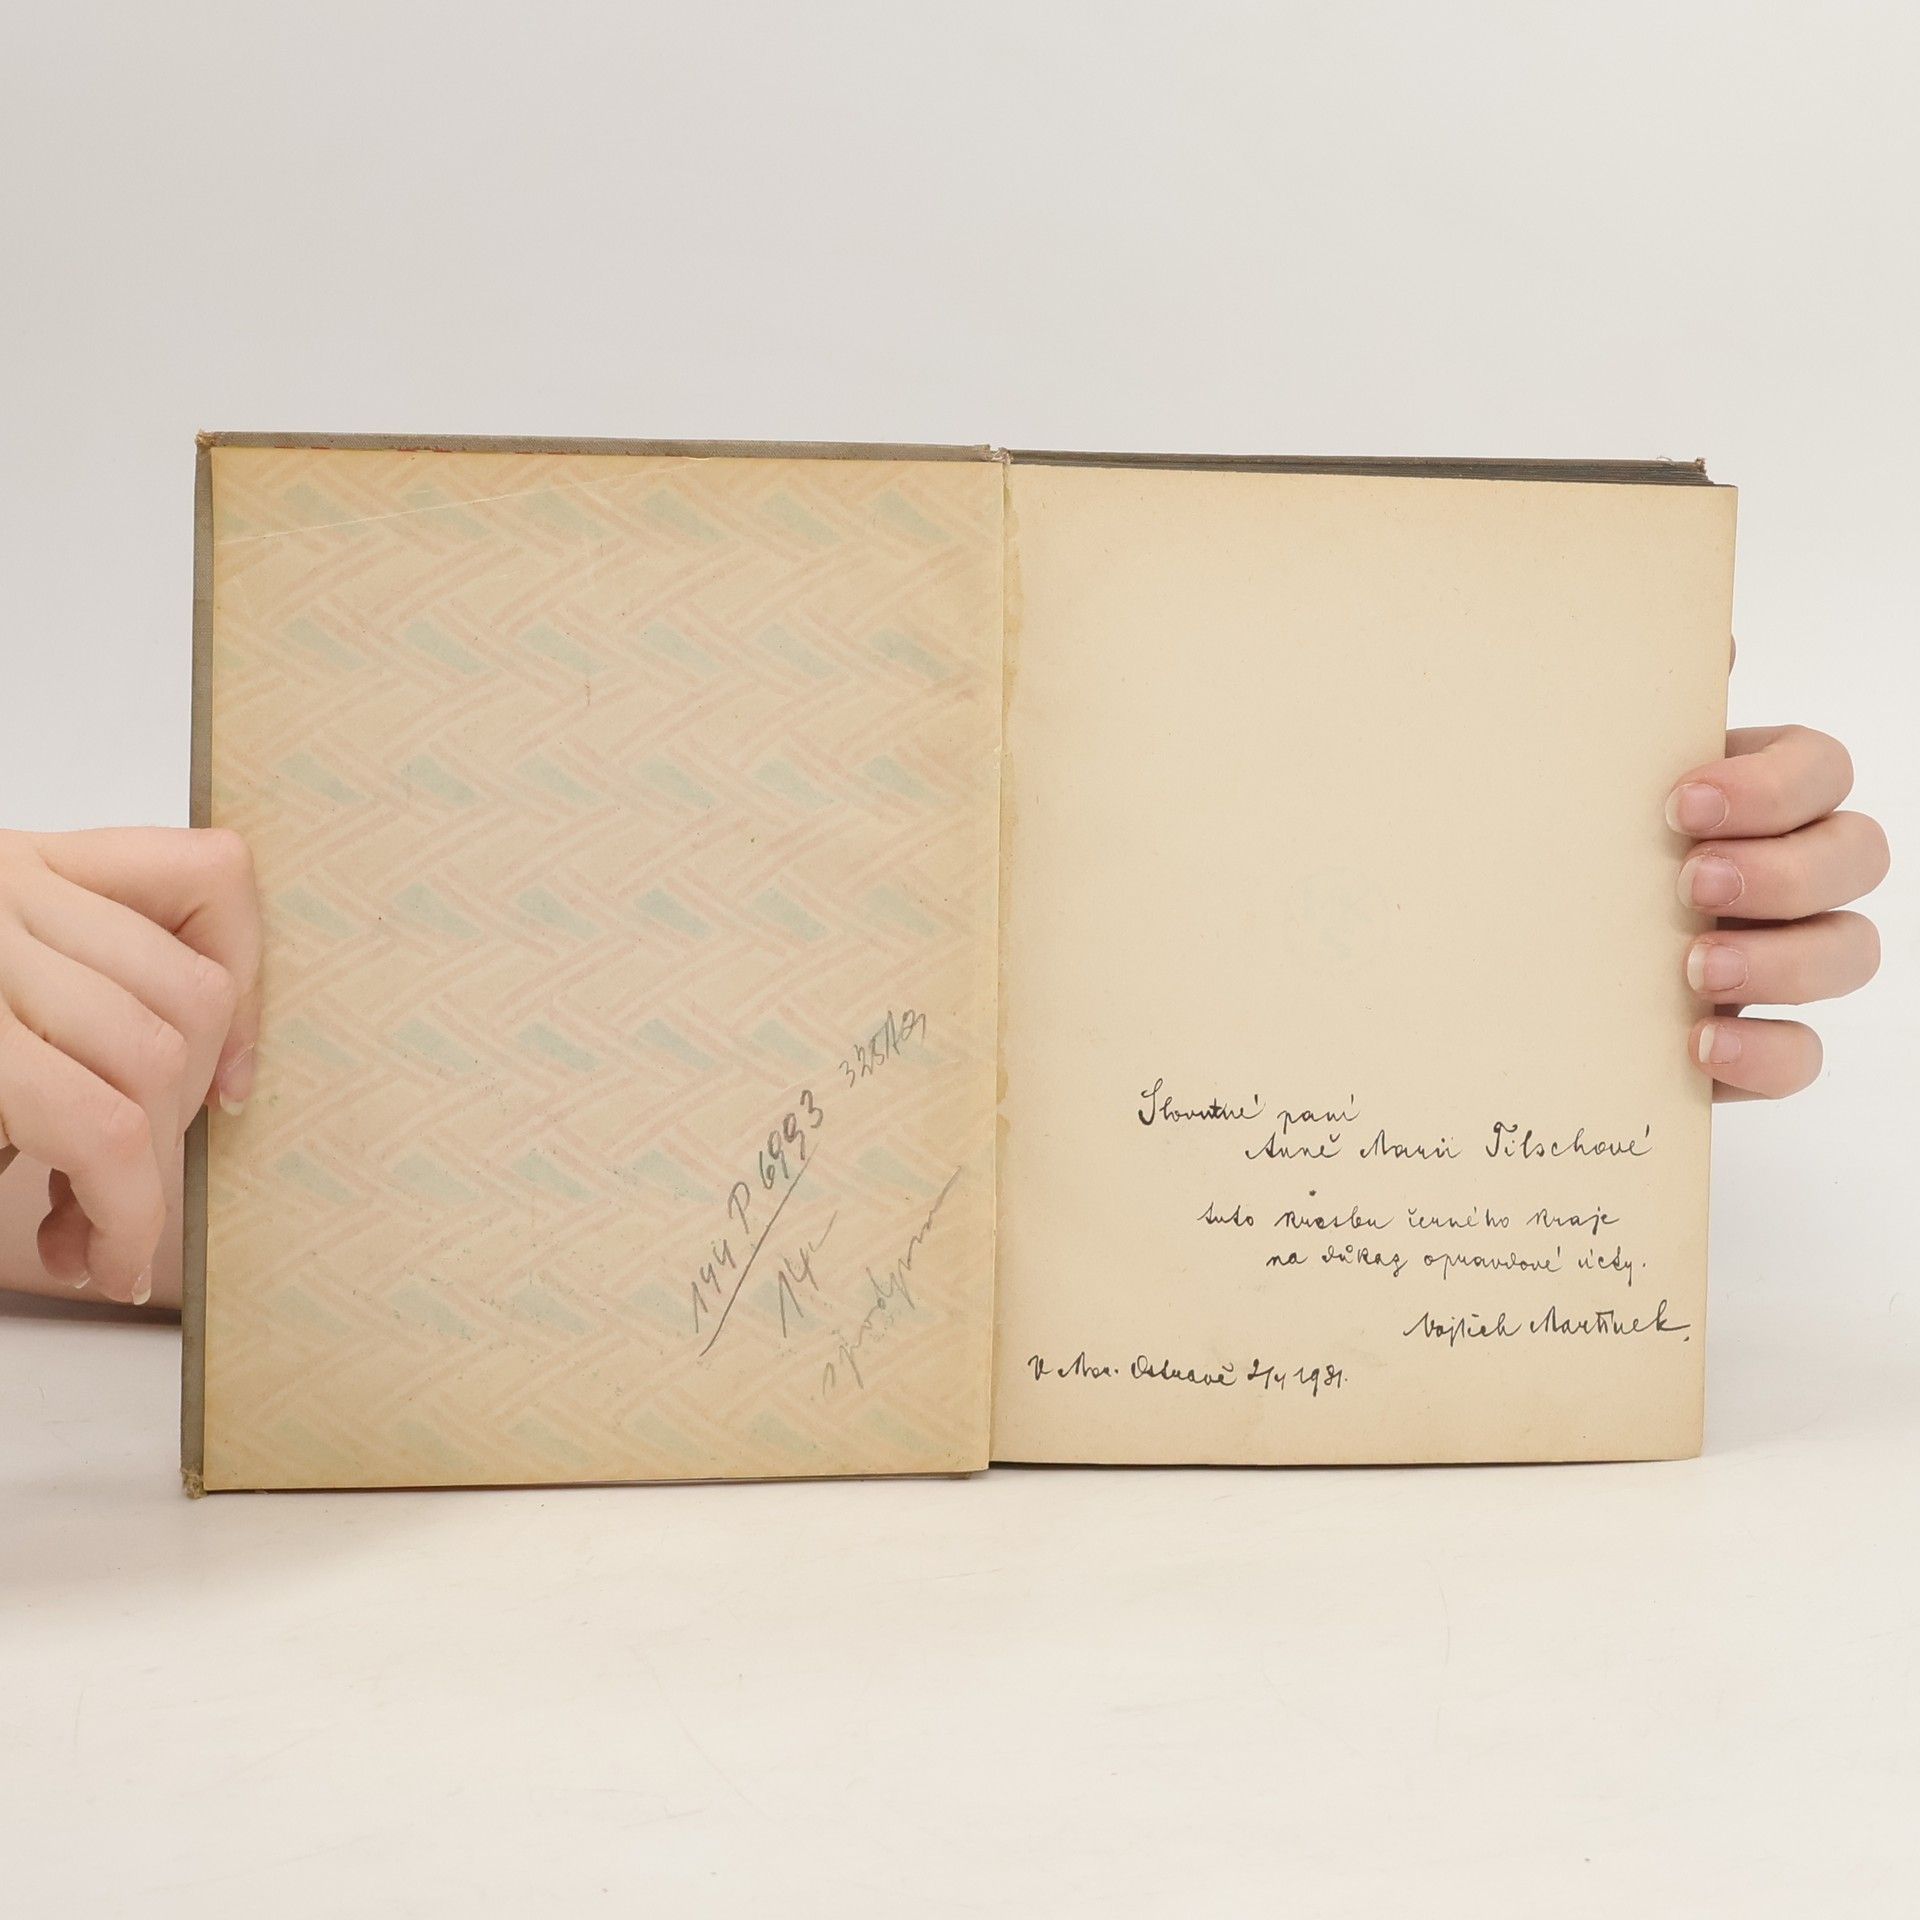 144 P 6993
14,-
Slovutné paní
Anně Marii Tilschové
tuto kresbu černého kraje
na důkaz opravdové úcty.
Vojtěch Martínek.
V Mor. Ostravě